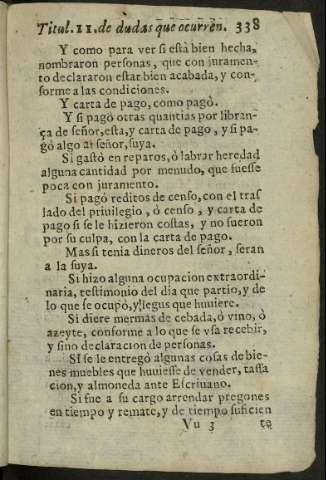 Titul. II. de dudas que ocurren. 338
Y como para ver si està bien hecha,
nombraron personas, que con juramen-
to declararon estar bien acabada, y con-
forme a las condiciones.
Y carta de pago, como pagò.
Y si pagò otras quantias por libran-
ça de señor, esta, y carta de pago, y si pa-
gò algo al señor, suya.
Si gastò en reparos, ò labrar heredad
alguna cantidad por menudo, que fuesse
poca con juramento.
Si pagò reditos de censo, con el tras
lado del priuilegio, ò censo, y carta de
pago si se le hizieron costas, y no fueron
por su culpa, con la carta de pago.
Mas si tenia dineros del señor, seran
a la suya.
Si hizo alguna ocupacion extraordi-
naria, testimonio del dia que partio, y de
lo que se ocupò, y leguas que huuiere.
Si diere mermas de cebada, ò vino, ò
azeyte, conforme a lo que se vsa recebir,
y sino declaracion de personas.
SI se le entregò algunas cosas de bie-
nes muebles que huuiesse de vender, tassa
cion, y almoneda ante Escriuano.
Si fue a su cargo arrendar pregones
en tiempo y remate, y de tiempo suficien
Vu 3 te